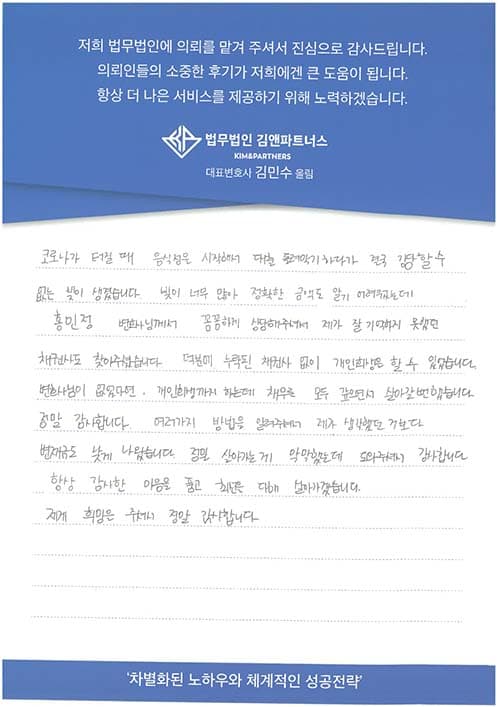 저희 법무법인에 의뢰를 맡겨 주셔서 진심으로 감사드립니다.
의뢰인들의 소중한 후기가 저희에겐 큰 도움이 됩니다.
항상 더 나은 서비스를 제공하기 위해 노력하겠습니다.
법무법인 김앤파트너스
KIM&PARTNERS
대표변호사 김민수 올림
코로나가 터질 때 음식점은 시작해서 대출 돌려막기 하다가 결국 감당할 수
없는 빚이 생겼습니다. 빚이 너무 많아 정확한 금액도 알기 어려웠는데
홍민정 변호사님께서 꼼꼼하게 상담해주셔서 제가 잘 기억하지 못했던
채권사도 찾아주셨습니다. 덕분에 누락된 채권사 없이 개인회생을 할 수 있었습니다.
변호사님이 없었다면, 개인회생까지 하는데 채무를 모두 갚으면서 살아갈뻔했습니다.
정말 감사합니다. 여러가지 방법을 알려주셔서 제가 생각했던 거보다
변제금도 낮게 나왔습니다. 정말 살아가는게 막막했는데 도와주셔서 감사합니다.
항상 감사한 마음을 품고 최선을 다해 살아가겠습니다.
제게 희망을 주셔서 정말 감사합니다.
'차별화된 노하우와 체계적인 성공전략'